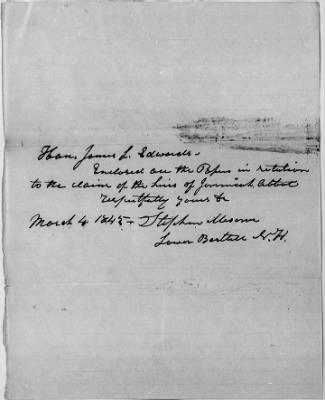 Hon. James L. Edwards -
Enclosed are the Papers in relation
to the claim of the Heirs of Jeremiah Abbot
respectfully yours &c
March 4 1845 - Stephen Meserve
Lower Bartlett N.H.